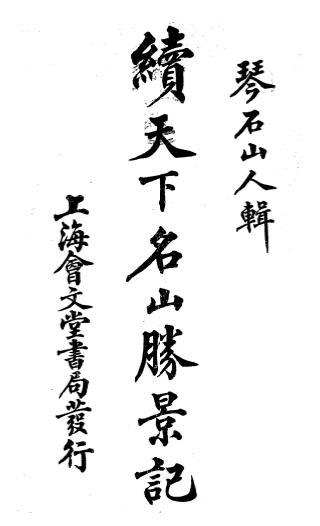 琴石山人輯
續天下名山勝景記
上海會文堂書局發行